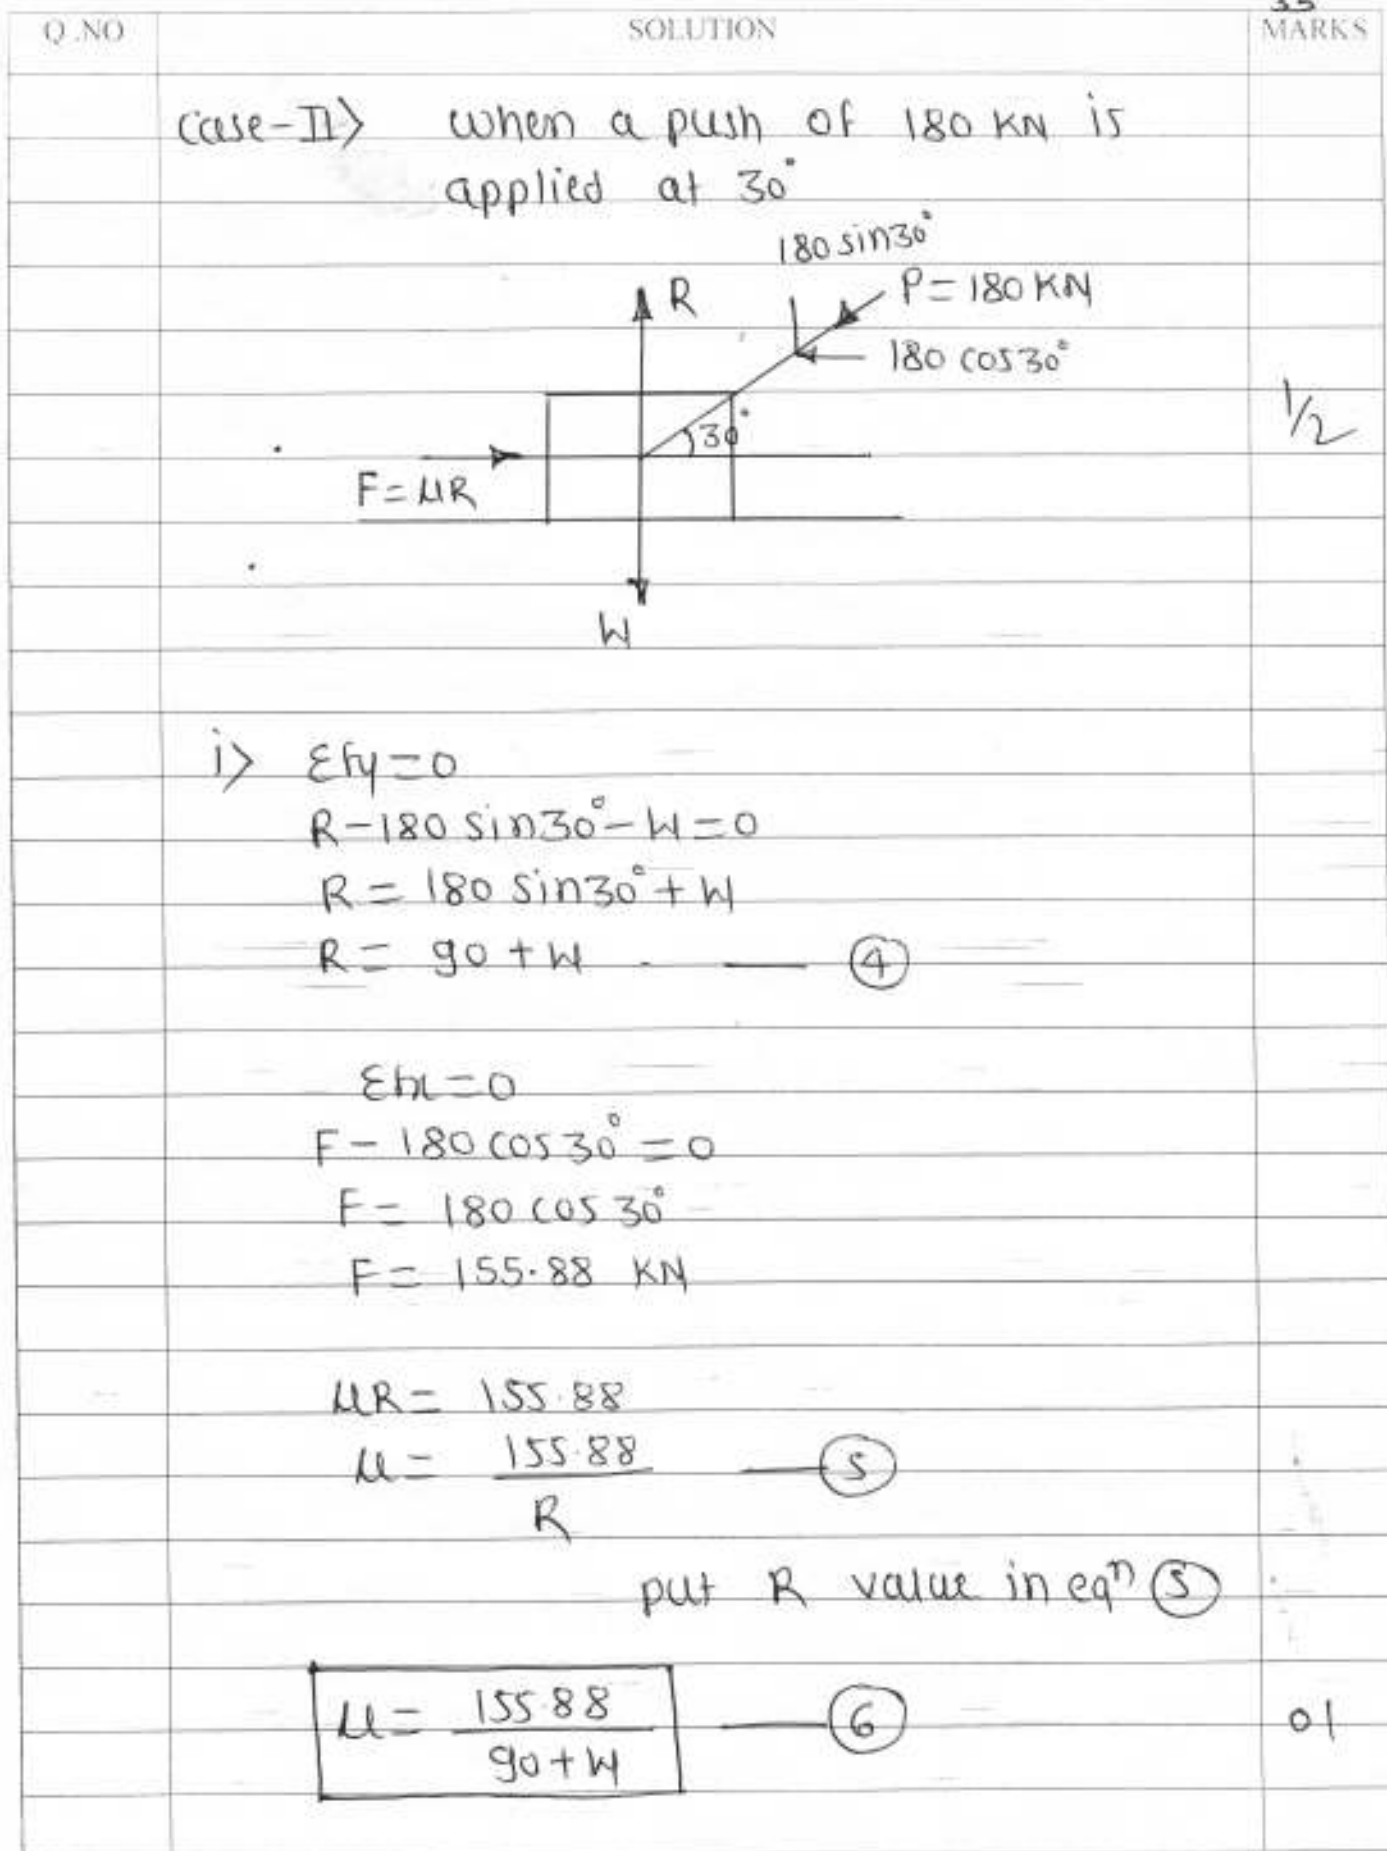 33
Q.NO SOLUTION MARKS
Case-II> when a push of 180 KN is
applied at 30°
180 sin30°
R P=180 KN
180 cos30°
1/2
30°
F=μR
W
i> Σfy=0
R-180 sin30°-W=0
R= 180 sin30°+W
R= 90+W - — ④
Σfx=0
F- 180 cos30°=0
F= 180 cos30°
F= 155.88 KN
μR= 155.88
μ= 155.88 / R — ⑤
put R value in eqⁿ ⑤
μ= 155.88 / 90+W — ⑥ 01